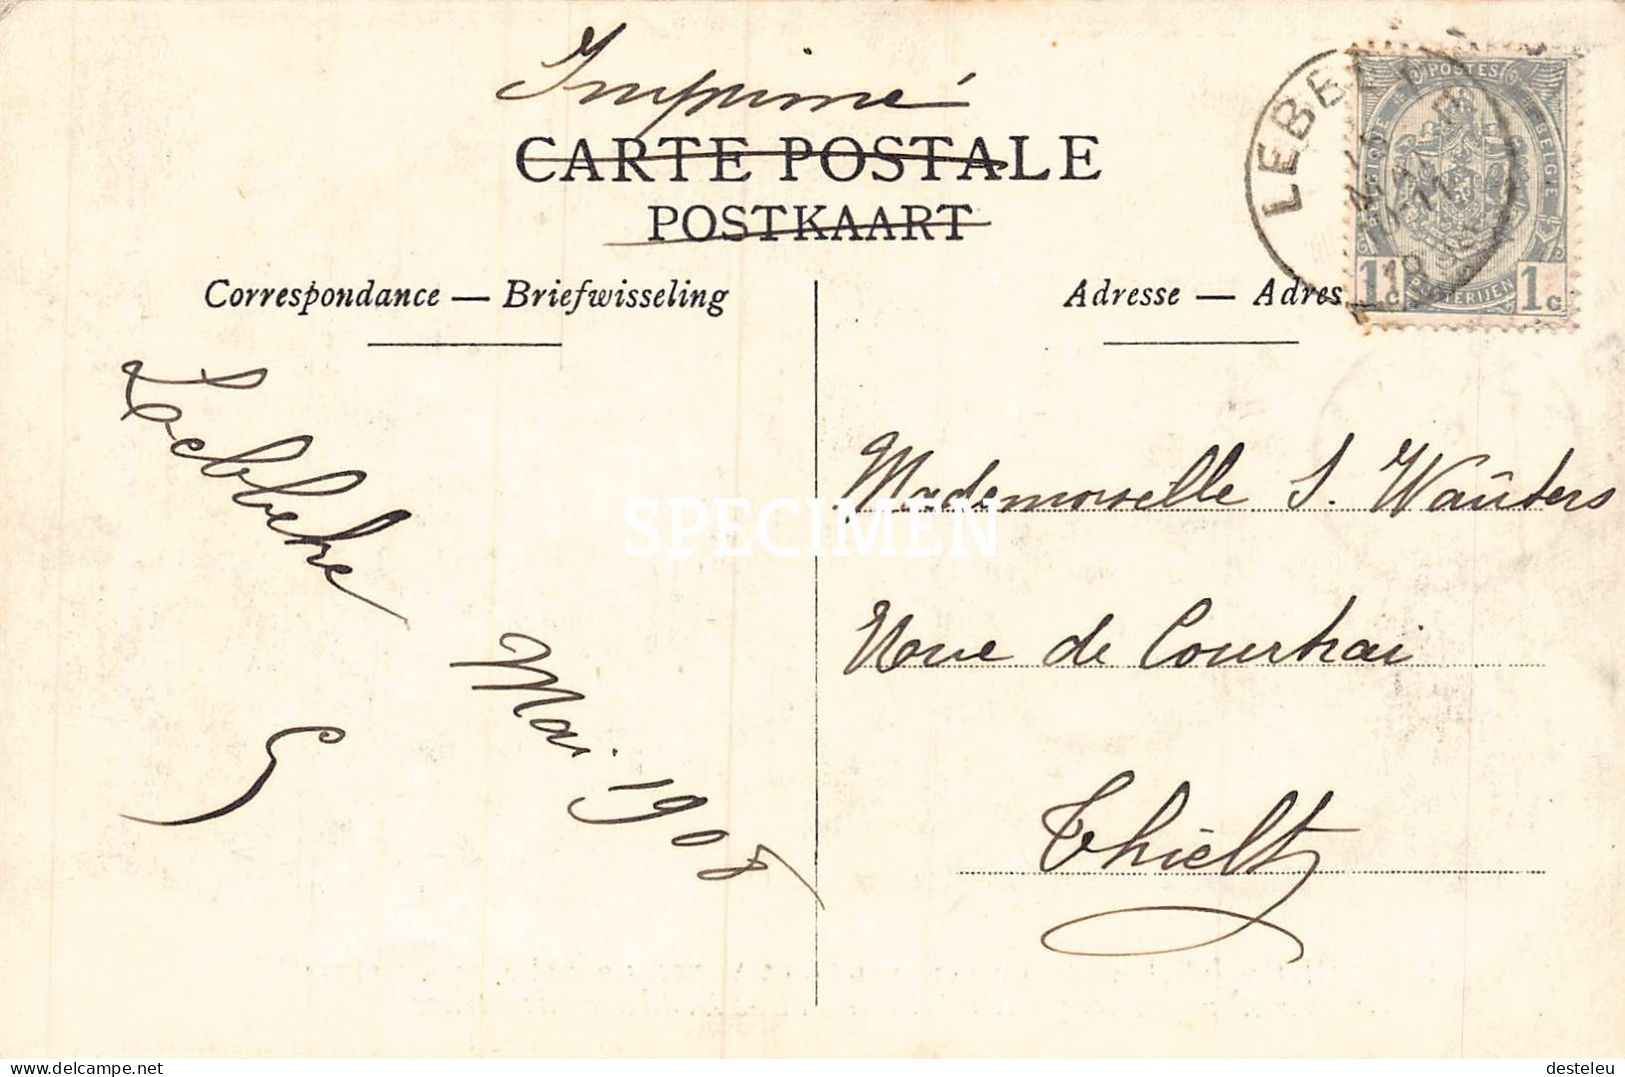 Imprimé
CARTE POSTALE
POSTKAART
Correspondance — Briefwisseling
Adresse — Adres
POSTES
BELGIQUE
BELGIË
POSTERIJEN
1c
1c
LEBBE
Lebbeke
Mai 1908
Mademoiselle S. Wauters
Rue de Courtrai
Thielt
SPECIMEN
desteleu